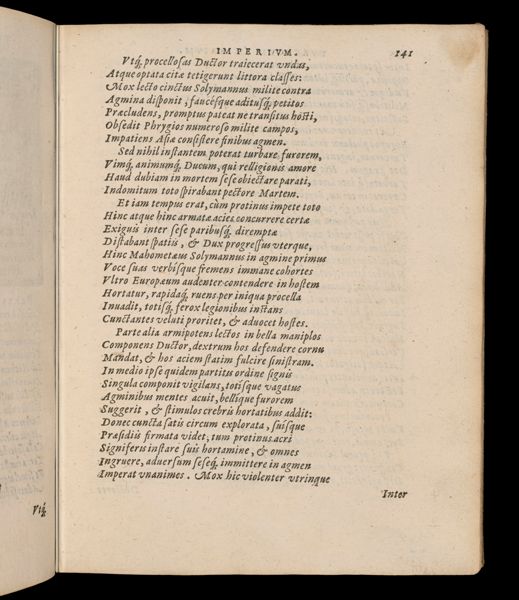 IMPERIVM. 141
Vtq́; procellosas Ductor traiecerat vndas,
Atque optata citæ tetigerunt littora classes:
Mox lecto cinctus Solymannus milite contra
Agmina disponit, faucésque aditusq́; petitos
Præcludens, promptus pateat ne transitus hosti,
Obsedit Phrygios numeroso milite campos,
Impatiens Asiæ consistere finibus agmen.
Sed nihil instantem poterat turbare furorem,
Vimq́; animumq́; Ducum, qui relligionis amore
Haud dubiam in mortem sese obiectare parati,
Indomitum toto spirabant pectore Martem.
Et iam tempus erat, cùm protinus impete toto
Hinc atque hinc armatæ acies concurrere certæ
Exiguis inter sese paribusq́; diremptæ
Distabant spatiis, & Dux progressus vterque,
Hinc Mahometæus Solymannus in agmine primus
Voce suas verbisque fremens immane cohortes
Vltro Europæum audenter contendere in hostem
Hortatur, rapidaq́; ruens per iniqua procella
Inuadit, totisq́; ferox legionibus instans
Cunctantes veluti proritet, & aduocet hostes.
Parte alia armipotens lectos in bella maniplos
Componens Ductor, dextrum hos defendere cornu
Mandat, & hos aciem statim fulcire sinistram.
In medio ipse quidem partitus ordine signis
Singula componit vigilans, totisque vagatus
Agminibus mentes acuit, bellique furorem
Suggerit, & stimulos crebris hortatibus addit:
Donec cuncta satis circum explorata, suisque
Præsidiis firmata videt, tum protinus acri
Signiferis instare suis hortamine, & omnes
Ingruere, aduersum seseq́; immittere in agmen
Imperat vnanimes. Mox hic violenter vtrinque
Inter
Vtq́;